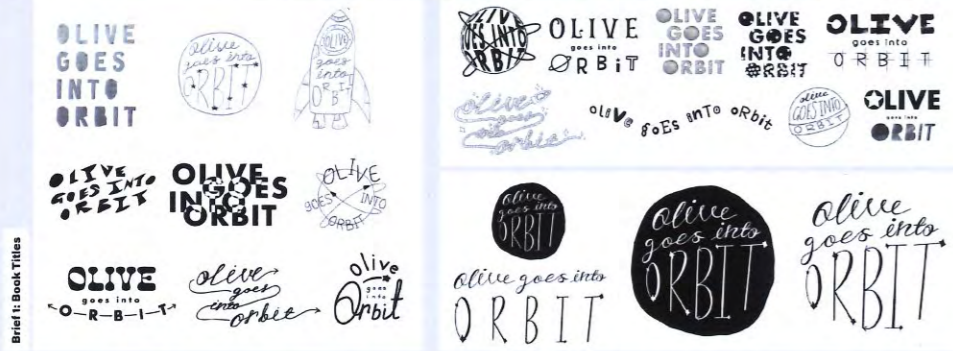 Brief 1: Book Titles
OLIVE
GOES
INTO
ORBIT
olive
goes into
ORBIT
OLIVE
goes
into
ORBIT
OLIVE
GOES INTO
ORBIT
OLIVE
GOES
INTO
ORBIT
OLIVE
GOES INTO
ORBIT
OLIVE
goes into
O-R-B-I-T
olive
goes
into
orbit
olive
goes
into
Orbit
OLIVE
GOES INTO
ORBIT
OLIVE
goes into
ORBiT
OLIVE
GOES
INTO
ORBIT
OLIVE
GOES
INTO
ORBIT
OLIVE
goes into
O-R-B-I-T
olive
goes
into
orbit
olive goEs inTo oRbit
olive
GOES INTO
ORBIT
OLIVE
goes into
ORBIT
olive
goes into
ORBIT
olive goes into
ORBIT
olive
goes into
ORBIT
olive
goes into
ORBIT